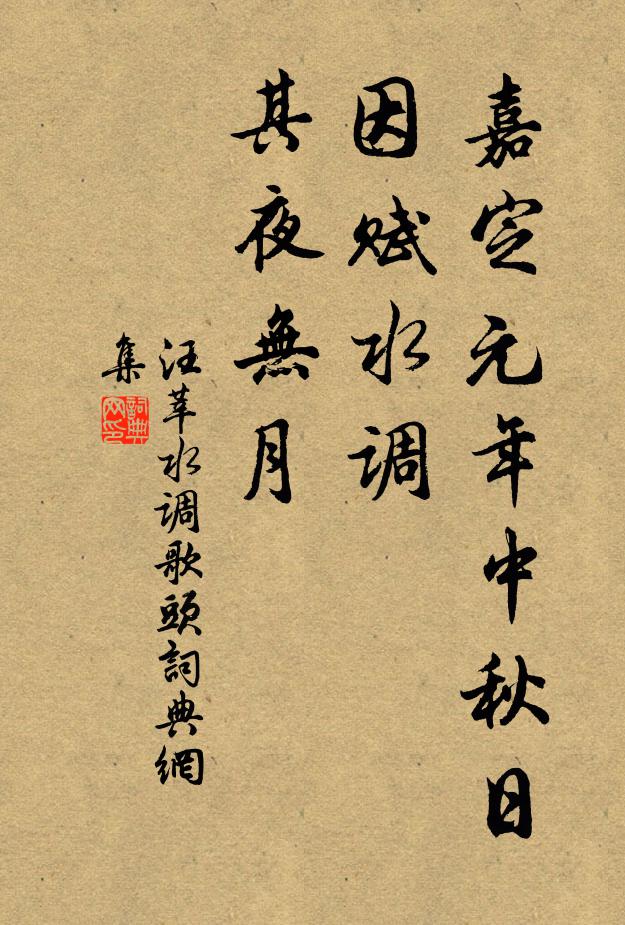 嘉定元年中秋日
因赋水调
其夜無月
汪莘水调歌頭詞典網
集
詞典
网印